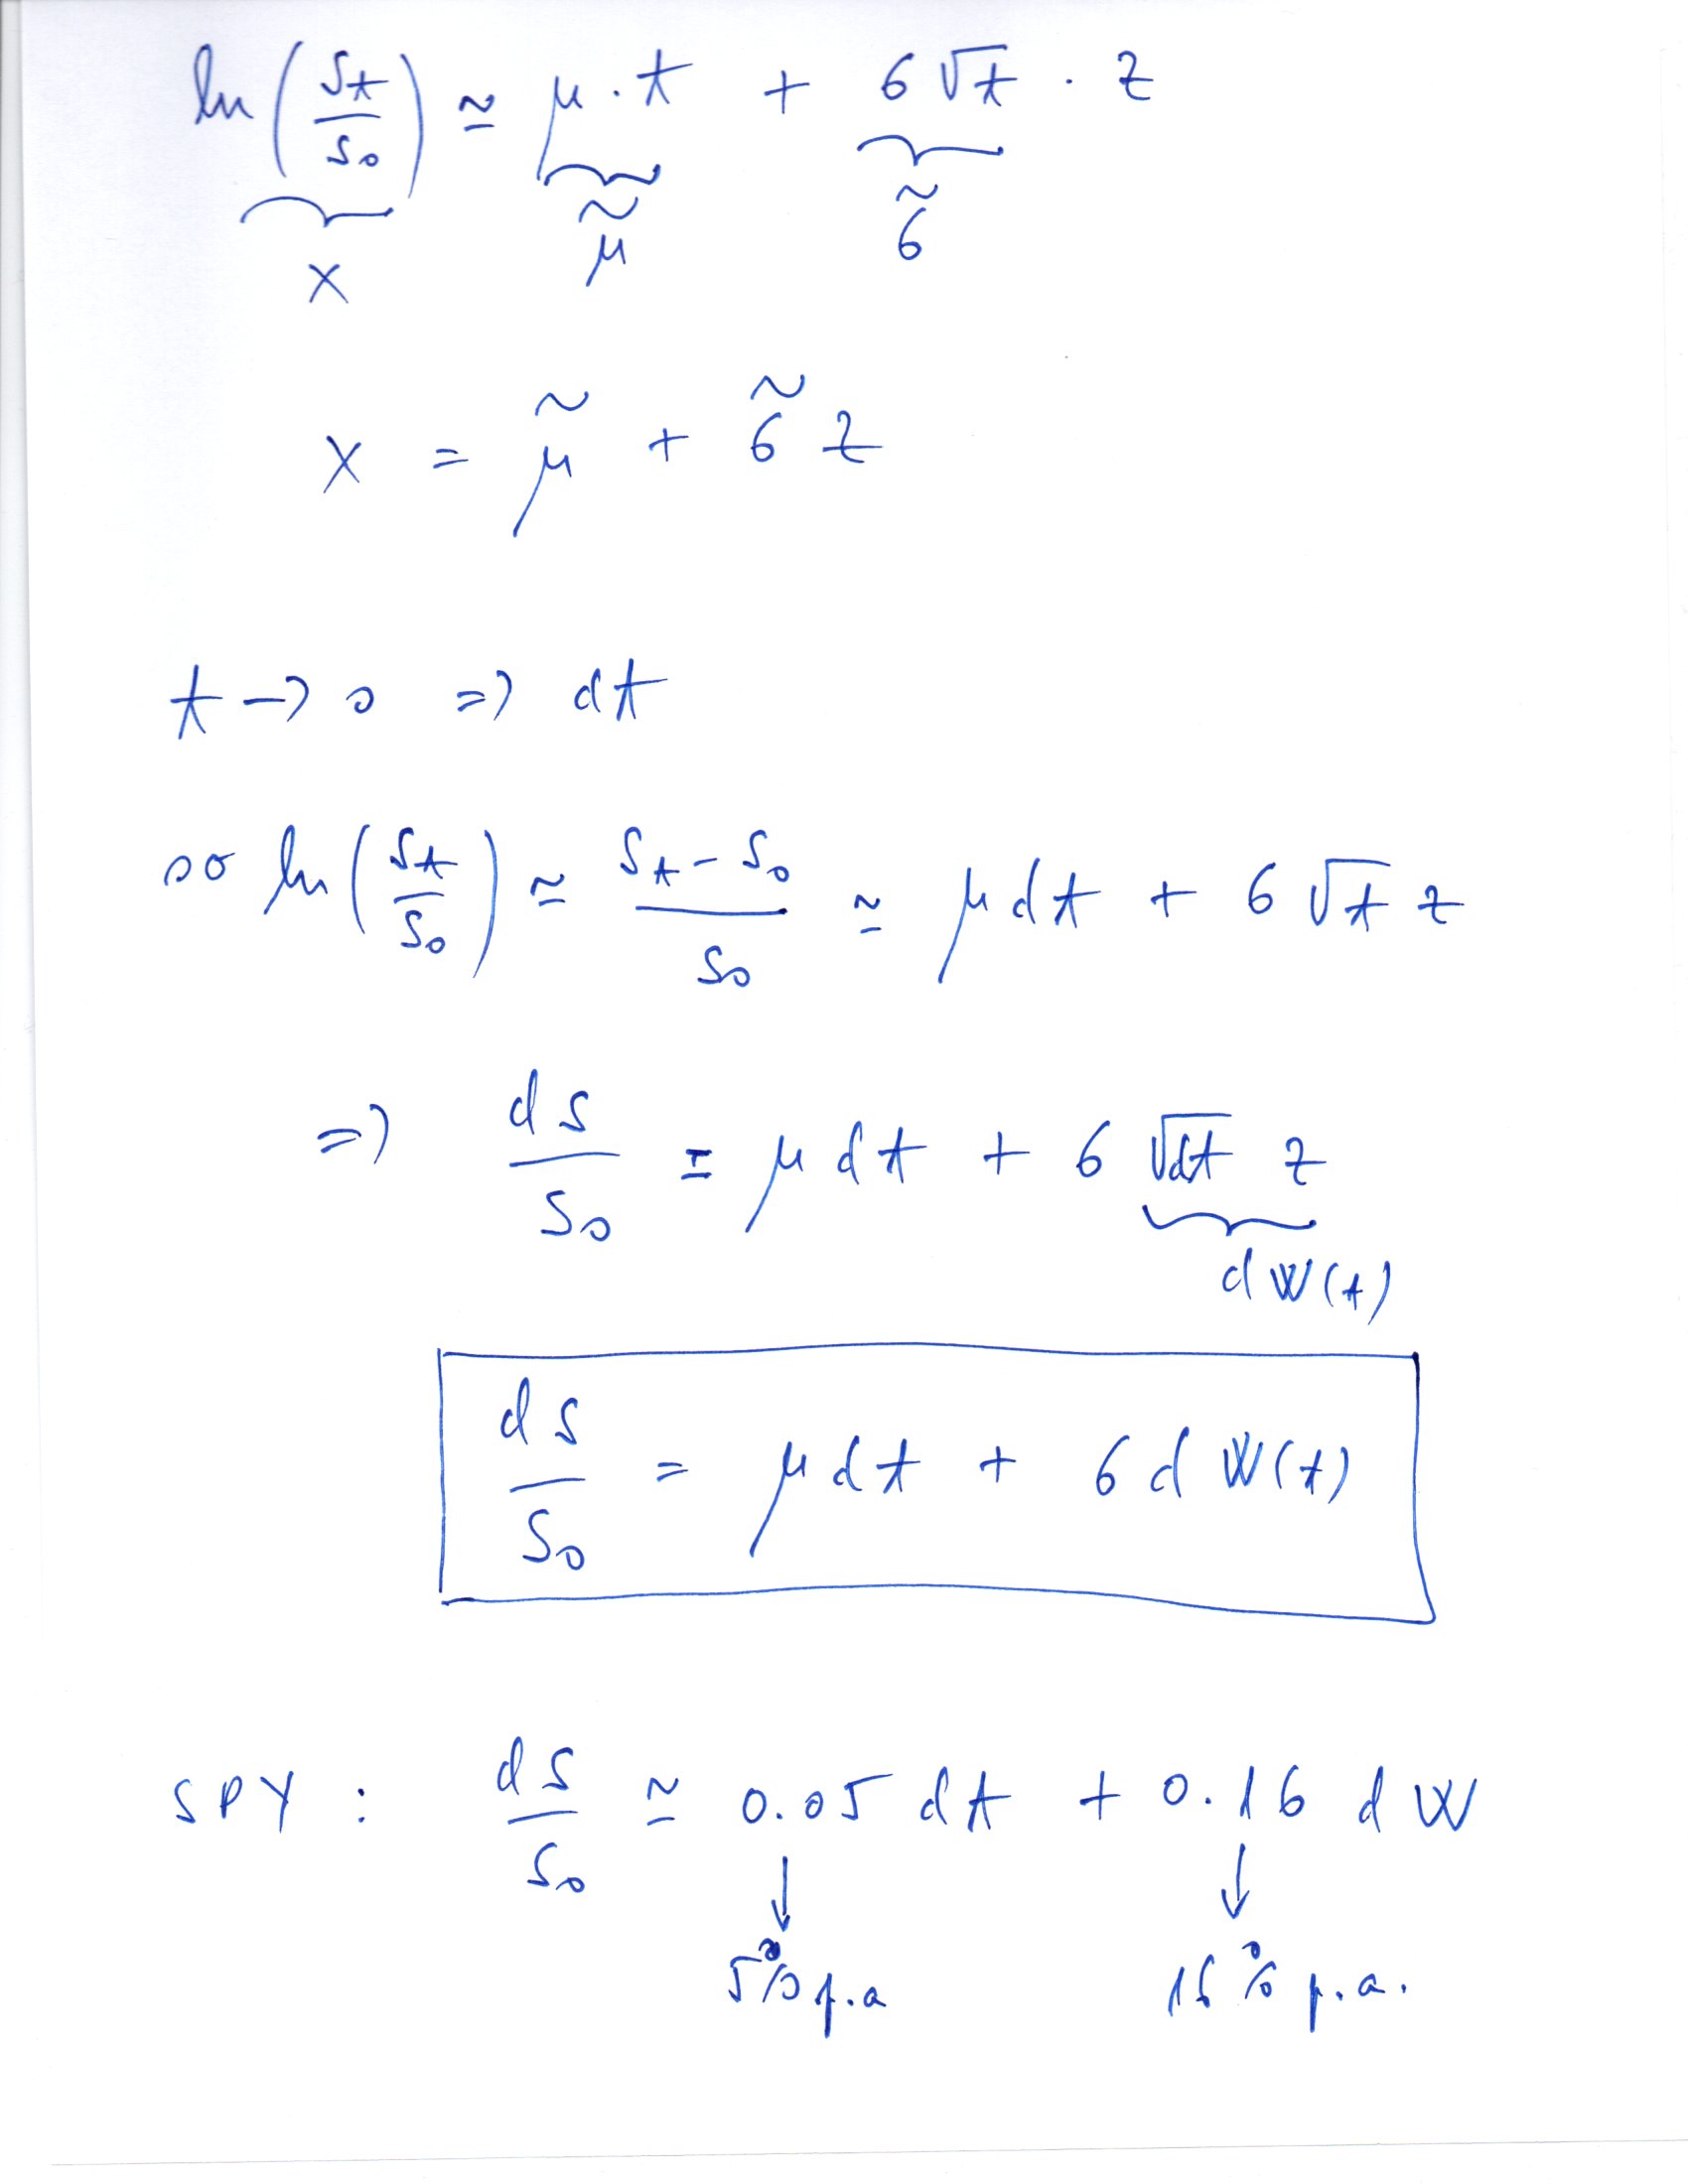 ln(St/S0) ≃ μ · t + σ√t · z
x μ̃ σ̃
x = μ̃ + σ̃ z
t → 0 => dt
so ln(St/S0) ≃ (St - S0)/S0 ≃ μdt + σ√t z
=> dS/S0 = μdt + σ √dt z
dW(t)
dS/S0 = μdt + σ d W(t)
SPY : dS/S0 ≃ 0.05 dt + 0.16 dW
↓ ↓
5% p.a 16% p.a.